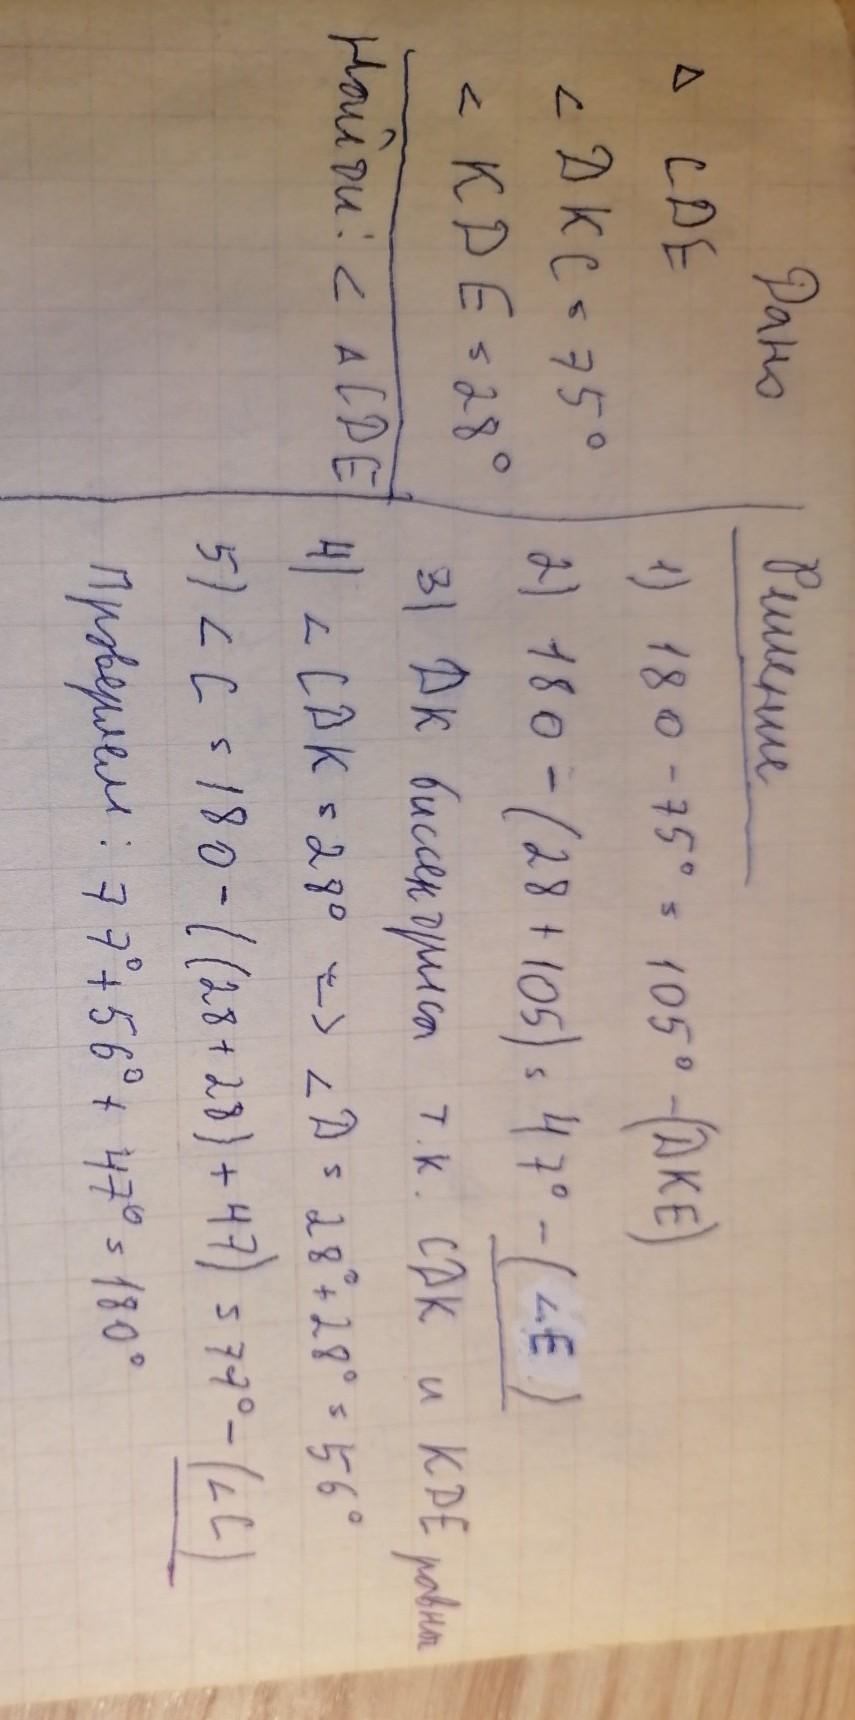 Дано
Δ CDE
< DKC = 75°
< KDE = 28°
Найти: < ΔCDE
Решение
1) 180 - 75° = 105° - (DKE)
2) 180 - (28 + 105) = 47° - (∠E)
3) DK биссектриса т.к. CDK и KDE равны
4) ∠CDK = 28° => ∠D = 28° + 28° = 56°
5) ∠C = 180 - ((28 + 28) + 47) = 77° - (∠C)
Проверяем: 77° + 56° + 47° = 180°